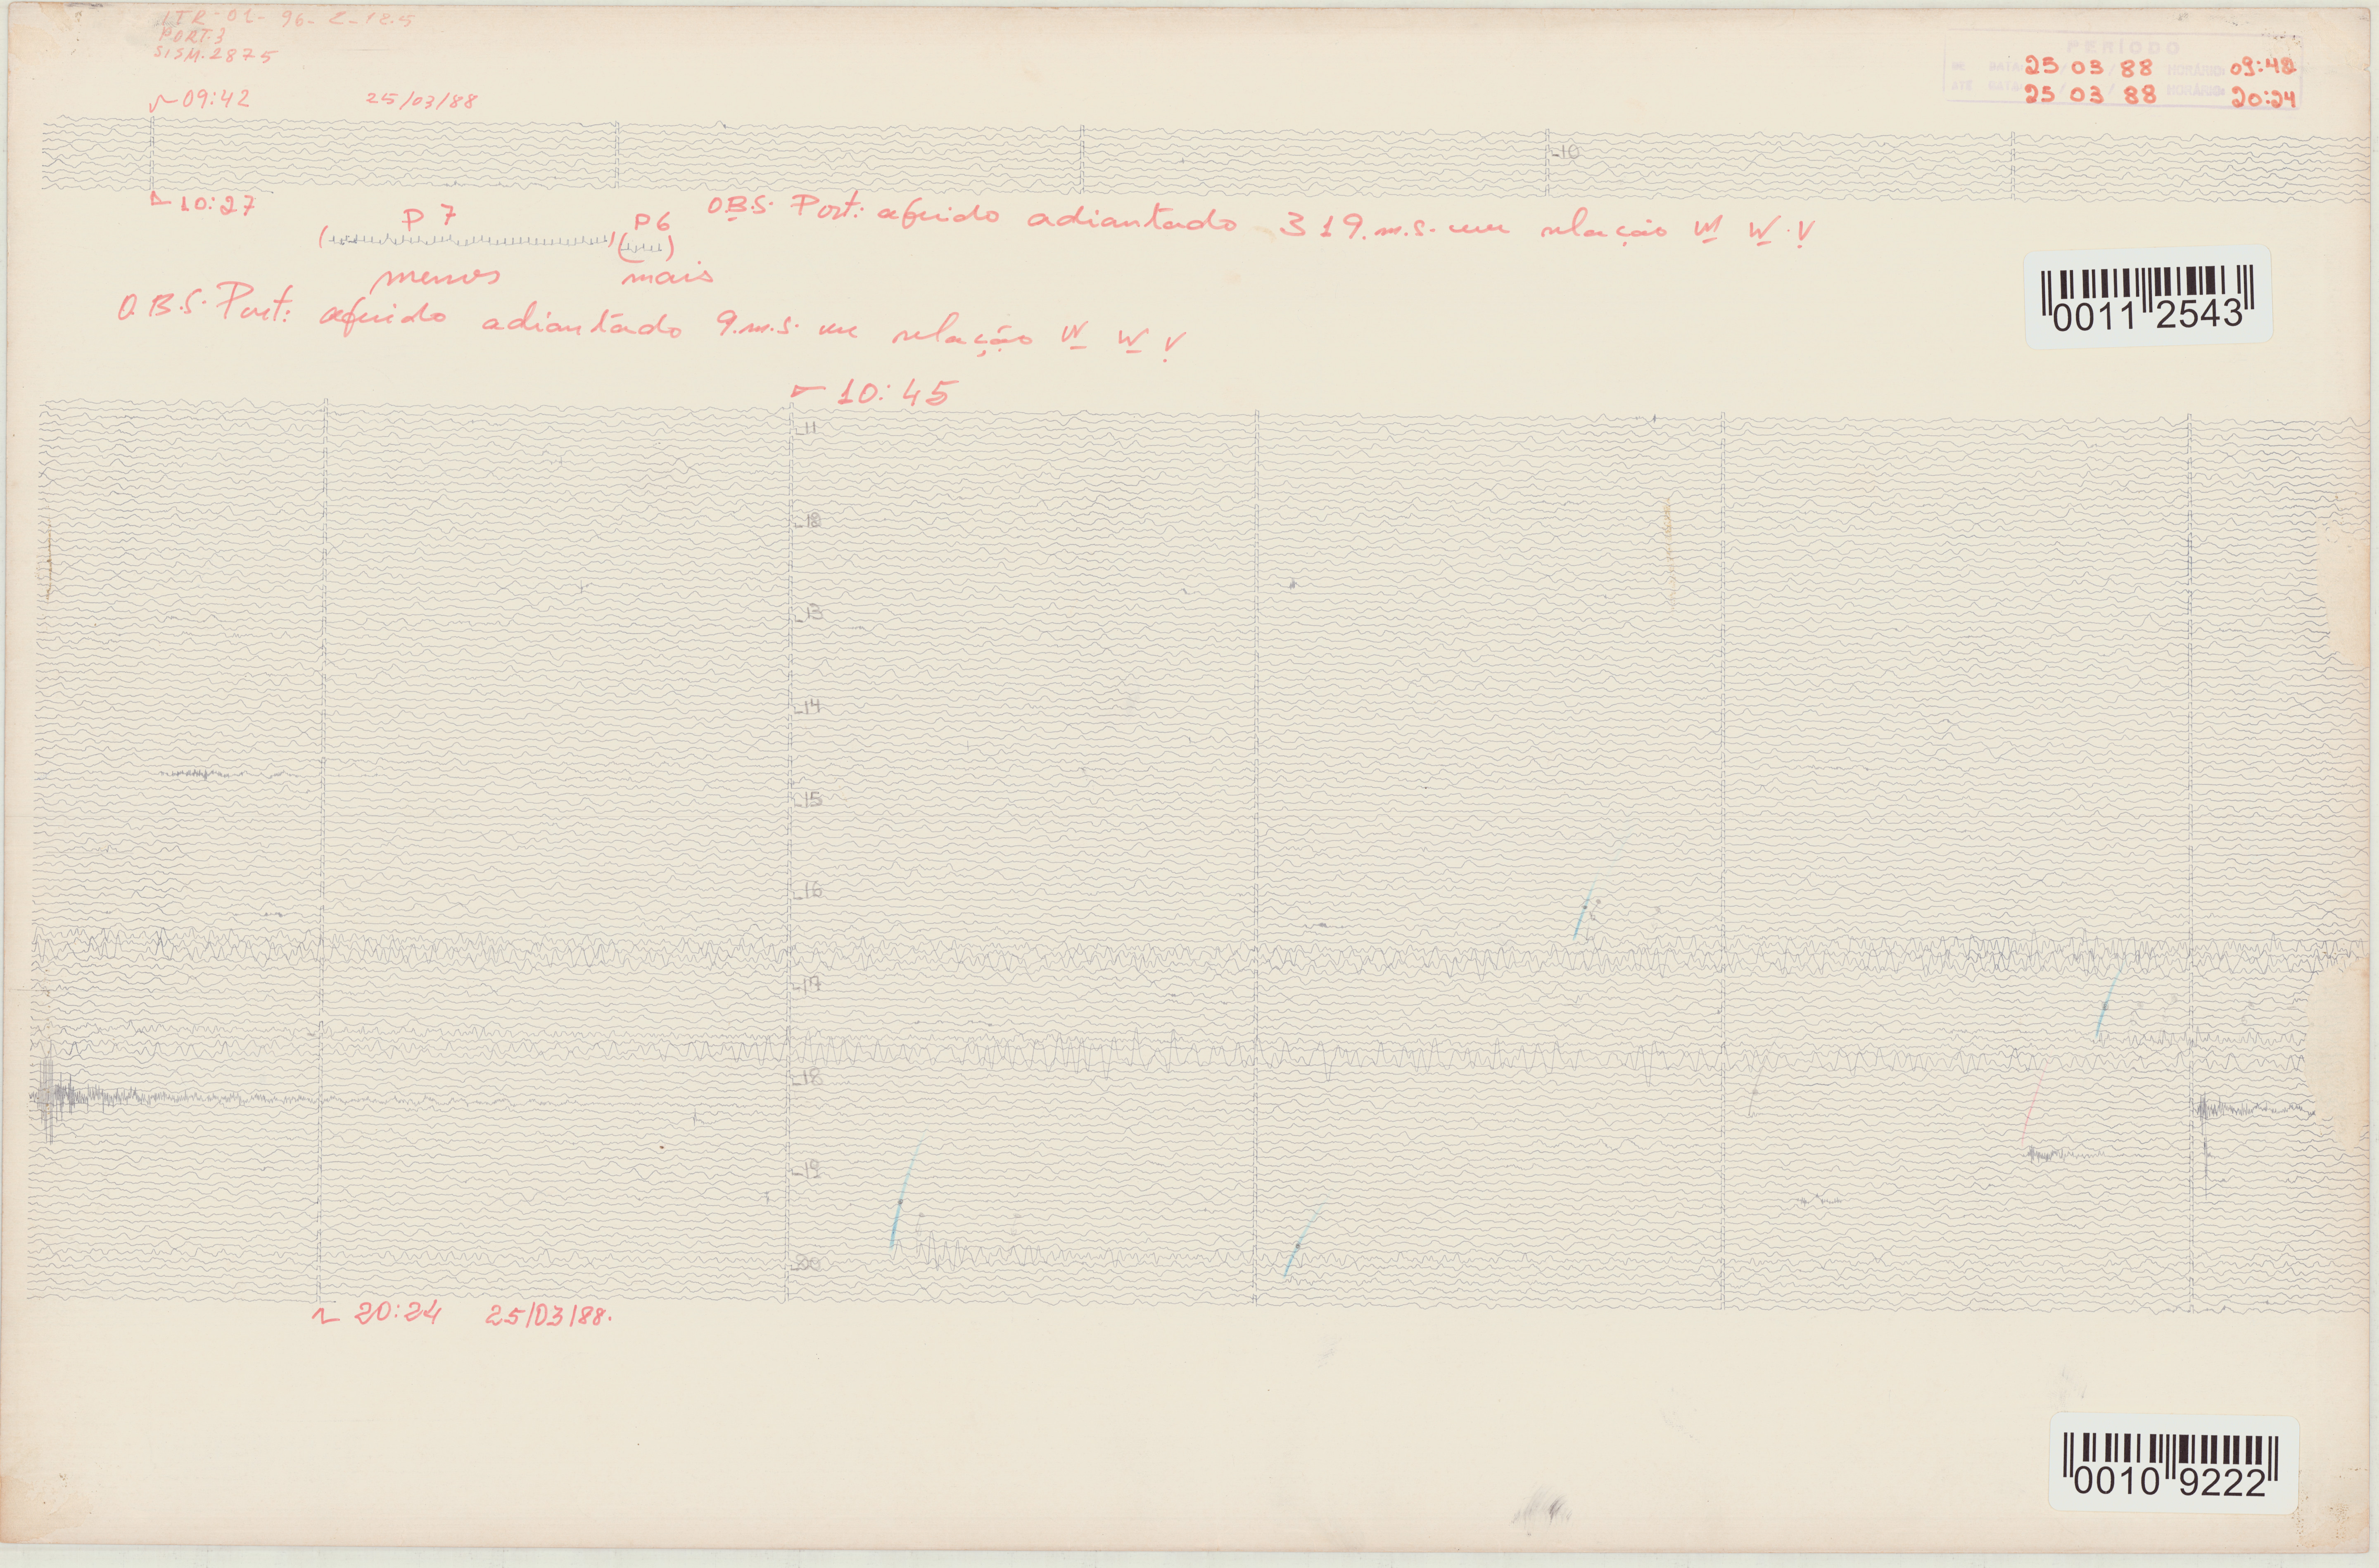 ITR-01-96-Z-18.5
PORT.3
SISM.2875
PERÍODO
DE DATA 25 / 03 / 88 HORÁRIO: 09:42
ATÉ DATA 25 / 03 / 88 HORÁRIO: 20:24
09:42 25/03/88
10
10:27
P 7 P6
O.B.S. Port: aferido adiantado 319.m.s. em relação W W V
menos mais
0011 2543
O.B.S. Port: aferido adiantado 9.m.s. em relação W W V
10:45
11
12
13
14
15
16
17
18
19
20
20:24 25/03/88.
0010 9222